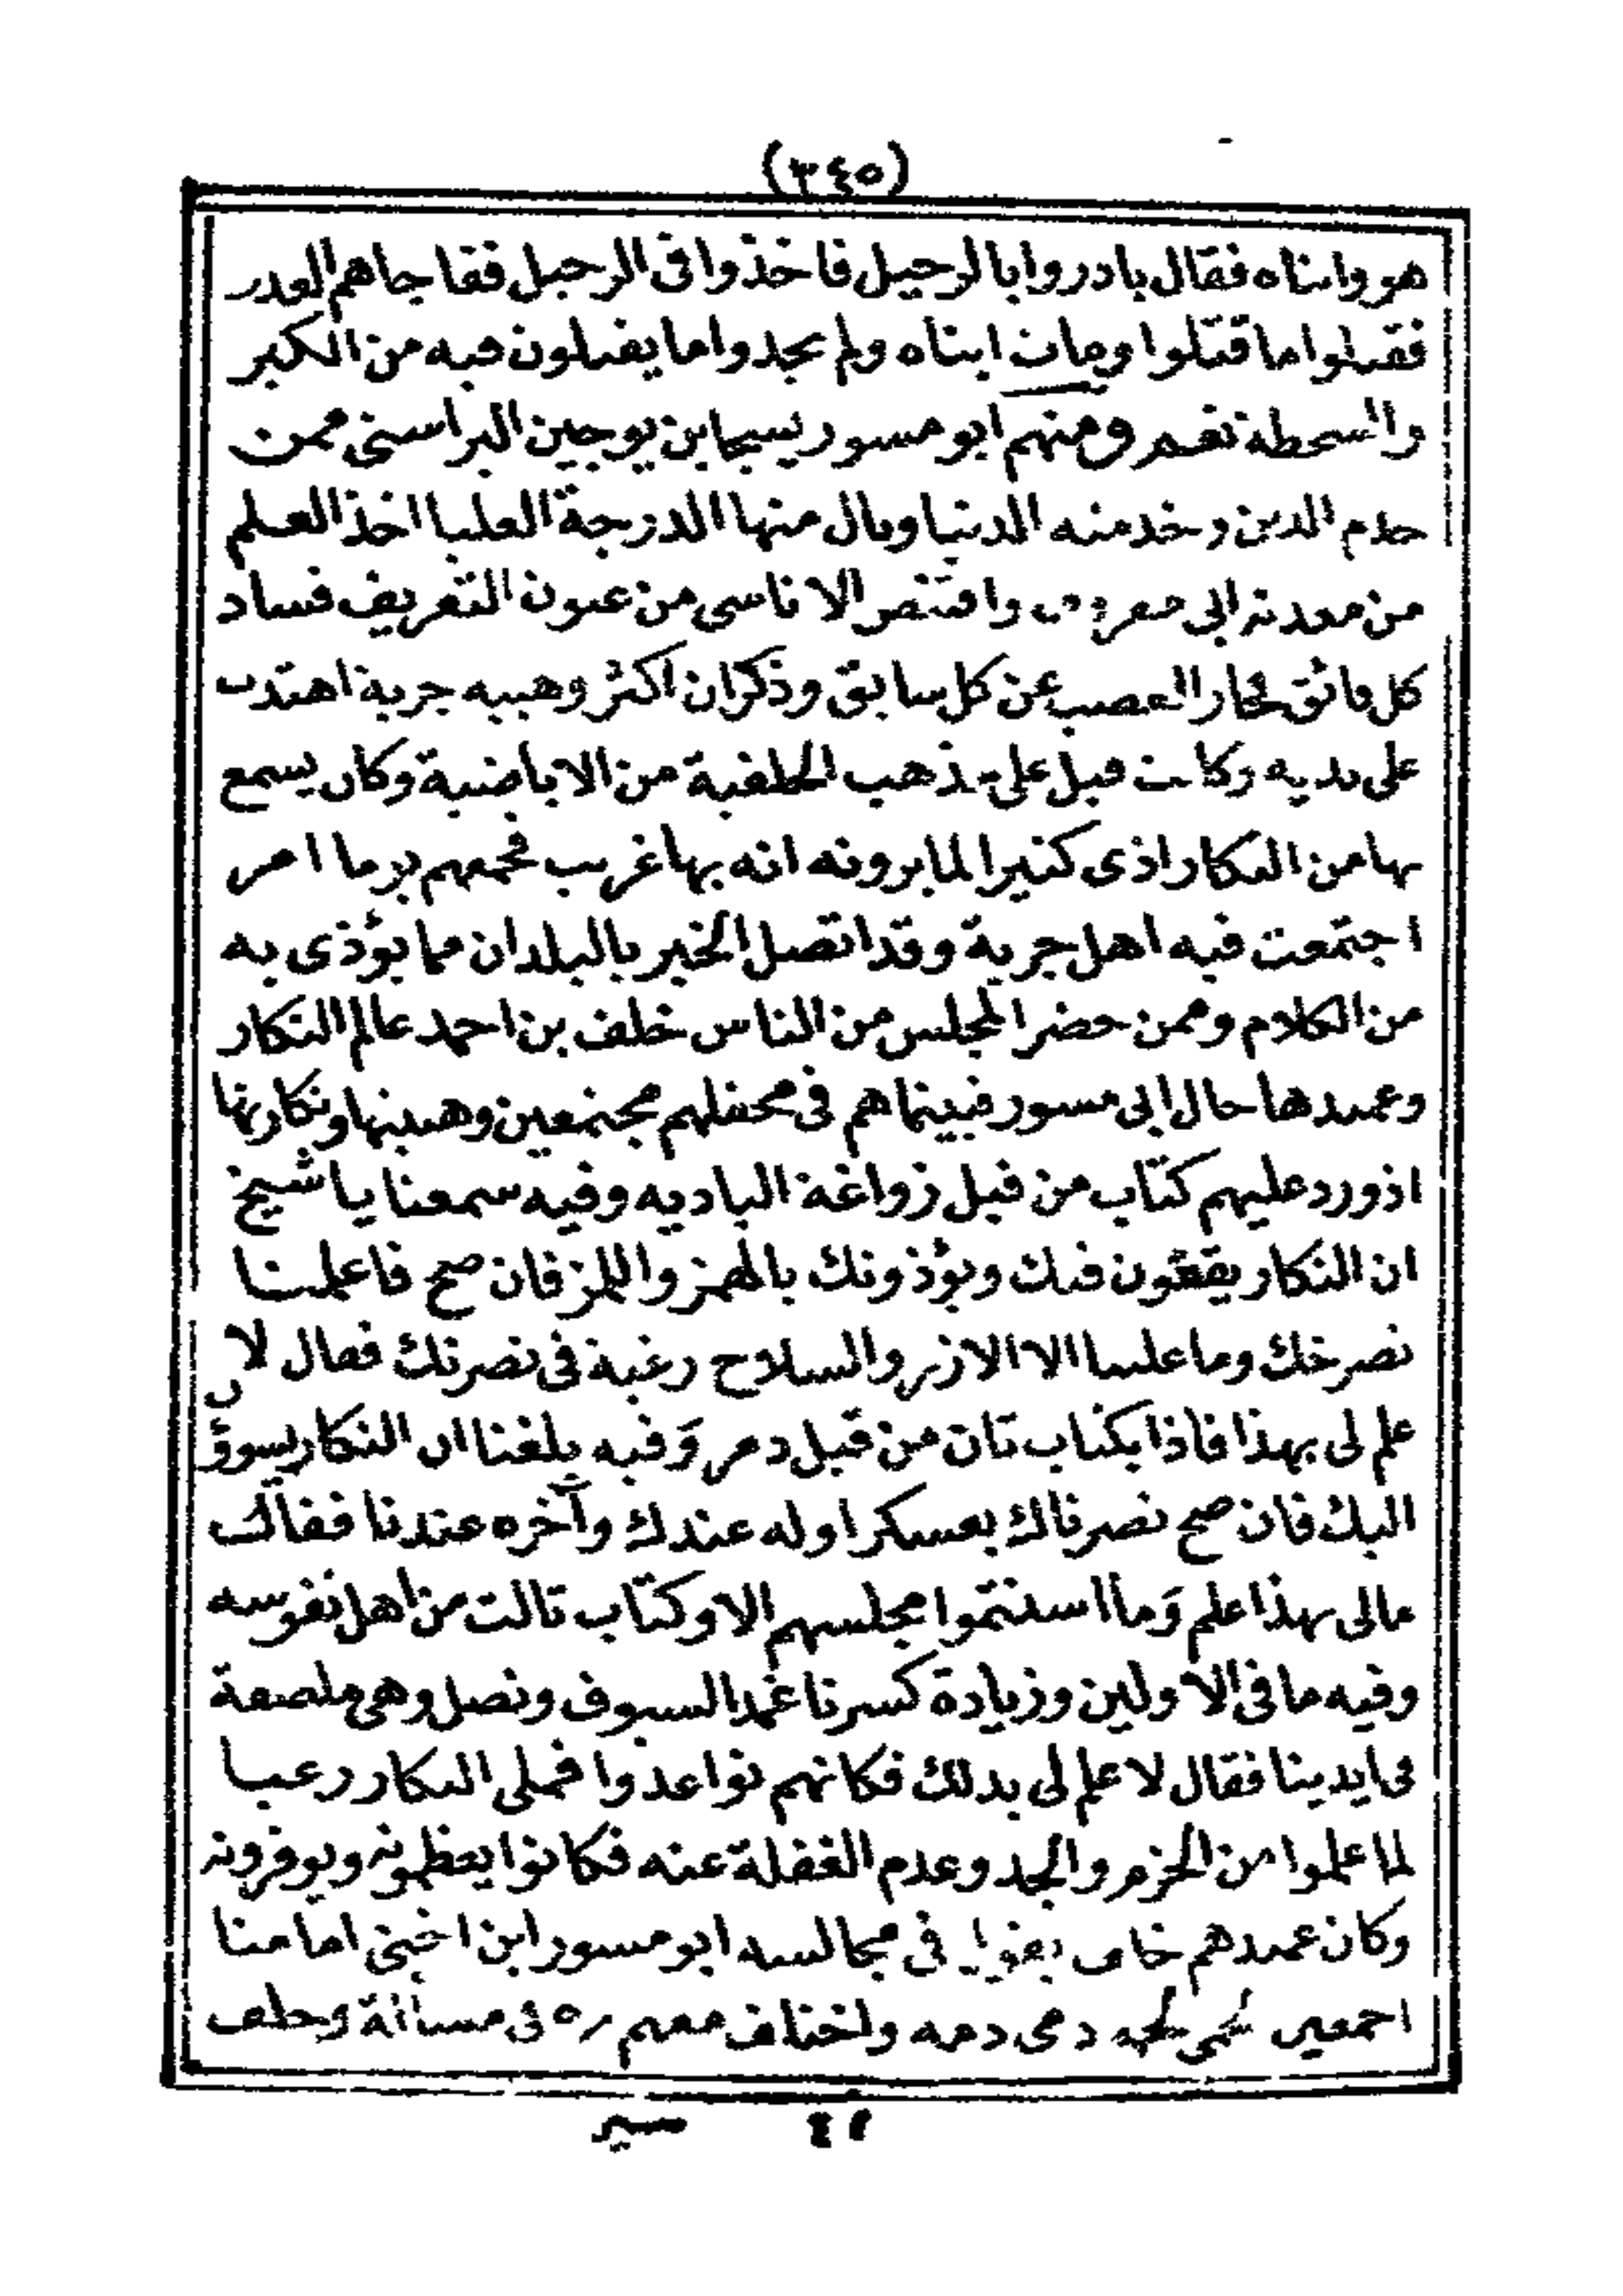 (٣٤٥)
هو وابناه فقال بادروا بالرحيل فاخذوا فى الرحيل ففاجاهم العدو
فقتلوا ما قتلوا ومات ابناه ولم يجدوا ما يفعلون فيه من الكبر
ومنهم ابو مسور يسجا بن يوجين اليراسنى ممن
خدم الدين وخدمته الدنيا ونال منها الدرجة العليا اخذ العلم
من معدنه ابى معروف واقتنص الاناسى من عيون التعريف فساد
كل فائق عن كل سابق وذكر ان اكثر وهبيه جربة اهتدت
على يديه وكانت قبل على مذهب الخلفية من الاباضية وكان يسمع
بها من النكار اذى كثيرا لما يرونه انه بها غريب فجمعهم يوما امر
اجتمعت فيه اهل جربة وقد اتصل الخبر بالبلدان مما يؤذى به
من الكلام وممن حضر المجلس من الناس خلف بن احمد عالم النكار
وعميدها خال ابى مسور فبينماهم فى محفلهم مجتمعين وهبيتها ونكارتها
اذ ورد عليهم كتاب من قبل زواغة الباديه وفيه سمعنا يا شيخ
ان النكار يقعون فيك ويؤذونك بالهمز واللمز فان صح فاعلمنا
نصرخك وما علينا الا الازر والسلاح رغبة فى نصرتك فقال لا
علم لى بهذا فاذا بكتاب ثان من قبل دمر وفيه بلغنا ان النكار يسوؤن
اليك فان صح نصرناك بعسكر اوله عندك وآخره عندنا فقال
مالى بهذا علم وما استتموا مجلسهم الا وكتاب ثالث من اهل نفوسه
وفيه ما فى الاولين وزيادة كسرنا غمد السيوف ونصل وهى ملصقة
فى ايدينا فقال لا علم لى بذلك فكانهم تواعدوا فملى النكار رعبا
لما علموا من الحزم والجد وعدم الغفلة عنه فكانوا يعظمونه ويوقرونه
وكان عميدهم خلف يقول فى مجالسه ابو مسور ابن اختى امامنا
اجمعين لحمى لحمه دمى دمه واختلف معهم مره فى مسالة وحلف
٤٤ سير